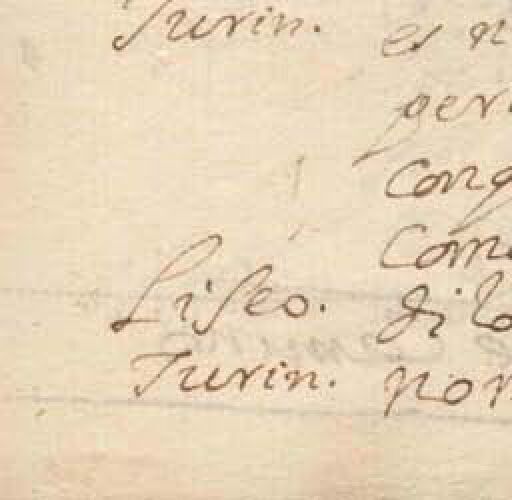 Turin. es n
per
cong
Com
Liseo. dilo
Turin. por